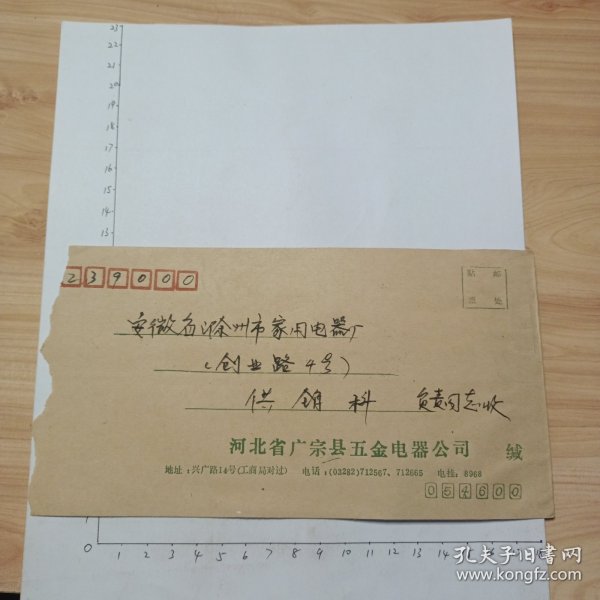 23
22
21
20
19
18
17
16
15
14
13
239000
贴 邮
票 处
安徽省滁州市家用电器厂
(创业路4号)
供销科 负责同志收
河北省广宗县五金电器公司 缄
地址:兴广路14号(工商局对过) 电话:(03282)712567、712665 电挂:8968
054600
1
0 1 2 3 4 5 6 7 8 9 10 11 12 13 14 15
孔夫子旧书网
www.kongfz.com